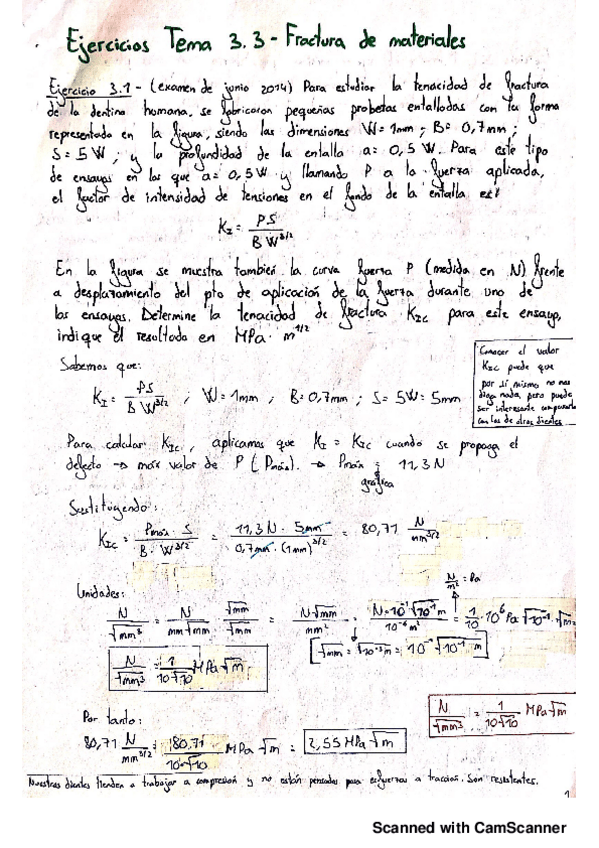 Ejercicios Tema 3.3 - Fractura de materiales
Ejercicio 3.1 - (examen de junio 2014) Para estudiar la tenacidad de fractura
de la dentina humana, se fabricaron pequeñas probetas entalladas con la forma
representada en la figura, siendo las dimensiones W = 1mm ; B = 0,7mm ;
S = 5W ; y la profundidad de la entalla a = 0,5 W. Para este tipo
de ensayos en los que a = 0,5W y llamando P a la fuerza aplicada,
el factor de intensidad de tensiones en el fondo de la entalla es:
K_I = PS / B W^3/2
En la figura se muestra también la curva fuerza P (medida en N) frente
a desplazamiento del pto de aplicación de la fuerza durante uno de
los ensayos. Determine la tenacidad de fractura K_IC para este ensayo,
indique el resultado en MPa · m^1/2
Sabemos que:
K_I = PS / B W^3/2 ; W = 1mm ; B = 0,7mm ; S = 5W = 5mm
Conocer el valor
K_IC puede que
por sí mismo no nos
diga nada, pero puede
ser interesante compararlo
con los de otros dientes
Para calcular K_IC, aplicamos que K_I = K_IC cuando se propaga el
defecto → máx valor de P (Pmáx). → Pmáx = 11,3N
gráfica
Sustituyendo:
K_IC = Pmáx · S / B · W^3/2 = 11,3N · 5mm / 0,7mm · (1mm)^3/2 = 80,71 N/mm^3/2
N/m² = Pa
Unidades:
N/√mm³ = N/mm√mm · √mm/√mm = N√mm/mm² = N·10⁻¹√10⁻¹m / 10⁻⁶m² = 1/10 · 10⁶ Pa √10⁻¹ · √m
[√mm = √10⁻³m = 10⁻¹√10⁻¹m]
N/√mm³ = 1/10√10 MPa√m
N/√mm³ = 1/10√10 MPa√m
Por tanto:
80,71 N/mm^3/2 = 80,71/10√10 MPa√m = 2,55 MPa√m
Nuestros dientes tienden a trabajar a compresión y no están pensados para esfuerzos a tracción. Son resistentes.
1
Scanned with CamScanner